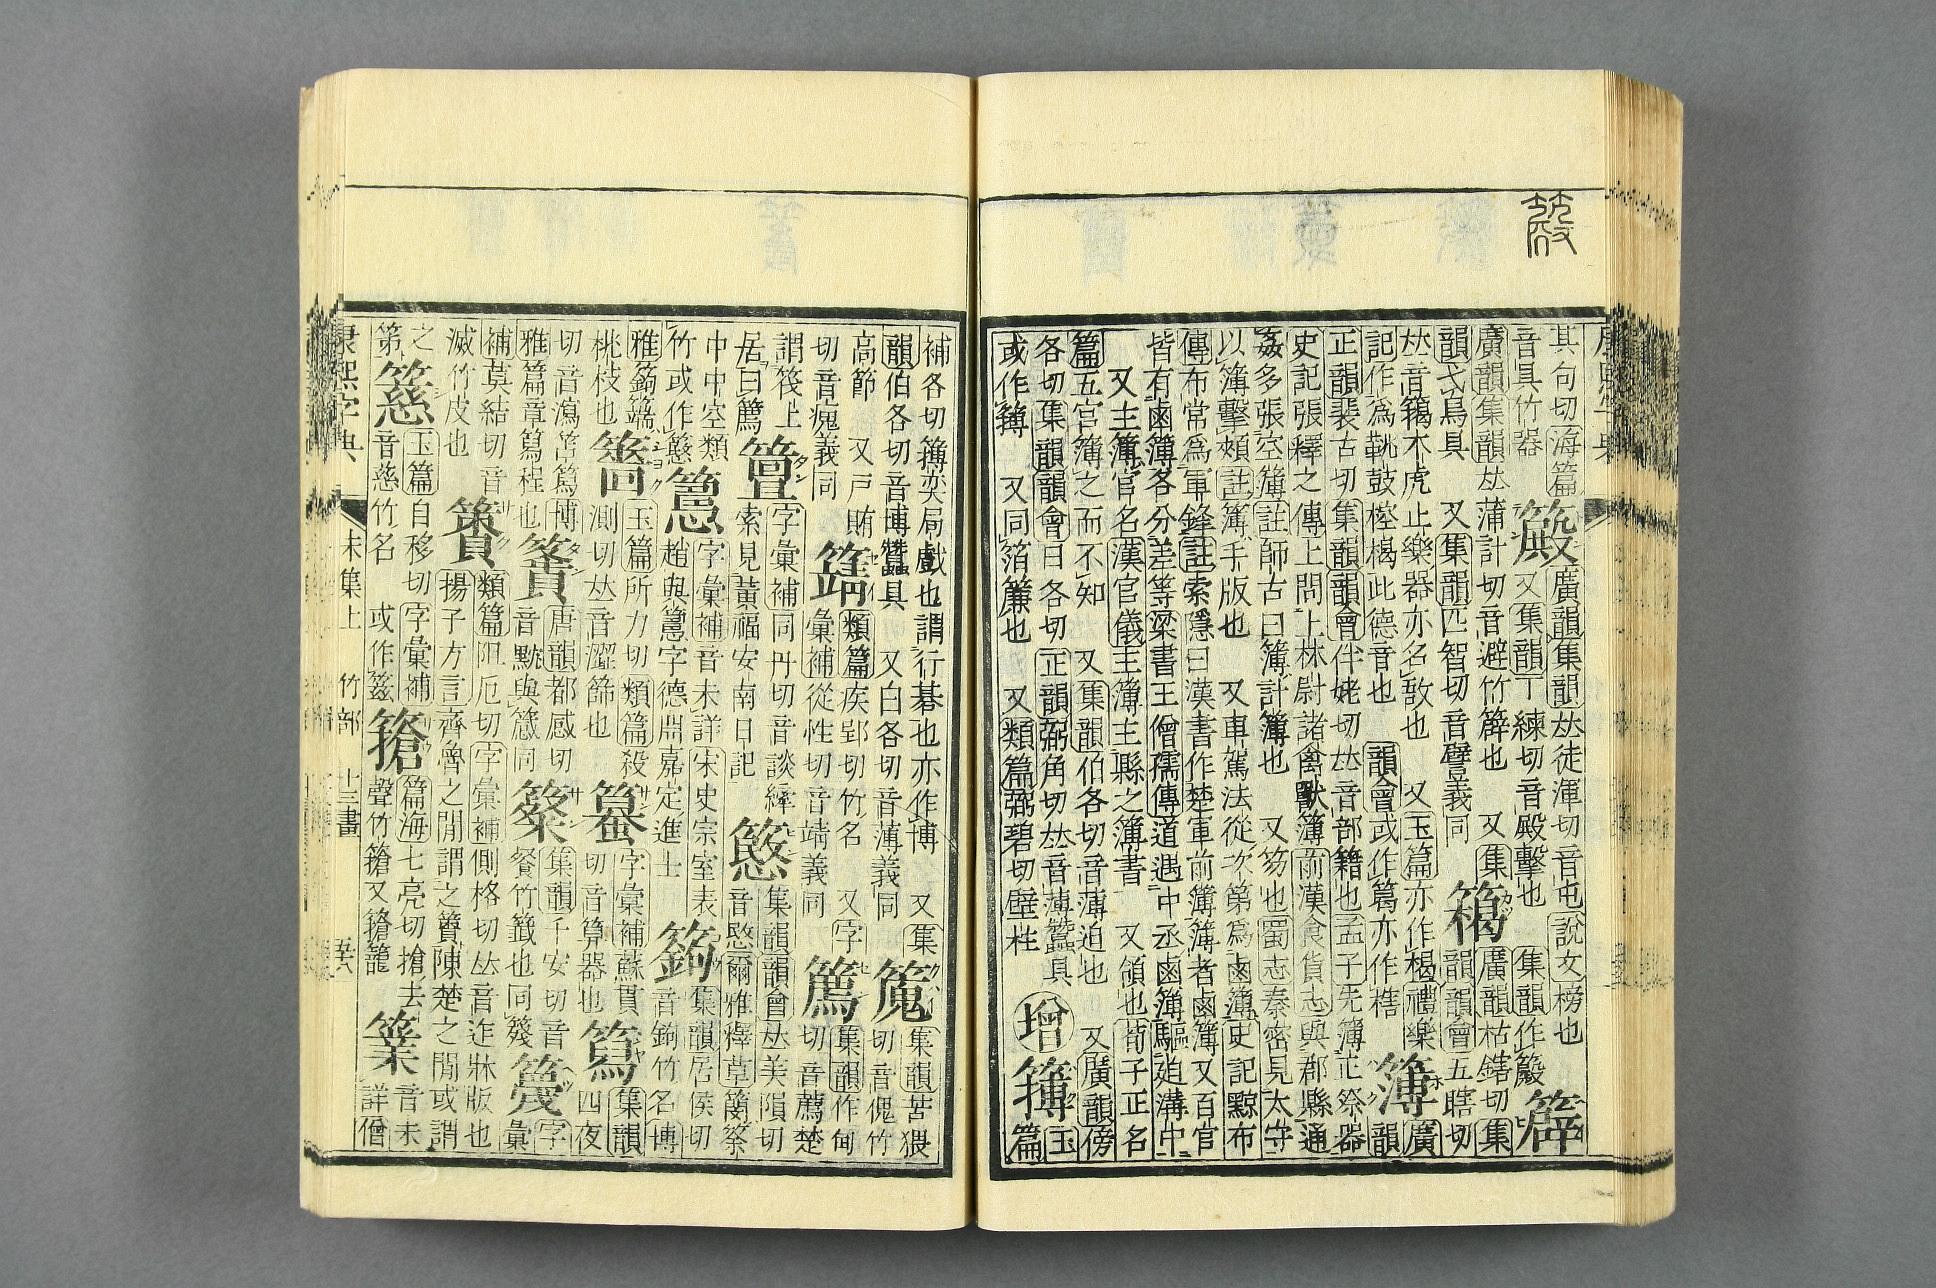 其句切海篇
音具竹器
簸廣韻集韻𠀤徒渾切音屯說文榜也
又集韻丁練切音殿擊也 集韻作簸
廣韻集韻𠀤蒲計切音避竹簈也 又集
韻弋鳥具 又集韻匹智切音譬義同
𠀤音籍木虎止樂器亦名敔也 又玉篇亦作楬禮樂
記作為鞉鼓椌楬此德音也 韻會或作篶亦作楷
簿廣
韻
正韻裴古切集韻韻會伴姥切𠀤音部籍也孟子先簿正祭器
史記張釋之傳上問上林尉諸禽獸簿前漢食貨志與郡縣通
姦多張空簿註師古曰簿計簿也 又笏也蜀志秦宓見太守
以簿擊頰註簿手版也 又車駕法從次第為鹵簿史記黥布
傳布常為軍鋒註索隱曰漢書作楚軍前簿簿者鹵簿又百官
皆有鹵簿各分差等梁書王僧孺傳道遇中丞鹵簿驅迫溝中
又主簿官名漢官儀主簿主縣之簿書 又領也荀子正名
篇五官簿之而不知 又集韻伯各切音薄迫也 又廣韻傍
各切集韻韻會白各切正韻弼角切𠀤音薄蠶具
或作簙 又同箔簾也 又類篇弼碧切壁柱
增
簙
玉
篇
補各切簙奕局戲也謂行棊也亦作博 又集
韻伯各切音博蠶具 又白各切音薄義同
集韻苦猥
切音傀竹
高節 又戸賄
切音瘣義同
類篇疾郢切竹名 又字
彙補從性切音靖義同
篤
集韻作甸
切音薦楚
謂筏上
居曰篤
字彙補同丹切音談繂
索見黃福安南日記
集韻韻會𠀤美隕切
音愍爾雅釋草簢筡
中中空類
竹或作慜
字彙補音未詳宋史宗室表
趙與篹字德鼎嘉定進士
集韻居侯切
音鉤竹名博
雅
桃枝也
玉篇所力切類篇殺
測切𠀤音澀篩也
字彙補蘇貫
切音算器也
集韻
四夜
切音瀉笘篤博
雅篇章篤程也
唐韻都感切
音黕與
集韻千安切音
餐竹籤也同
字
彙
補莫結切音
滅竹皮也
類篇阻厄切字彙補側格切𠀤音迮牀版也
揚子方言齊魯之閒謂之簀陳楚之閒或謂
之
第
玉篇自移切字彙補
音慈竹名 或作
篇海七亮切搶去
聲竹籠
業
音未
詳僧
康熙字典
未集上 竹部 十三畫